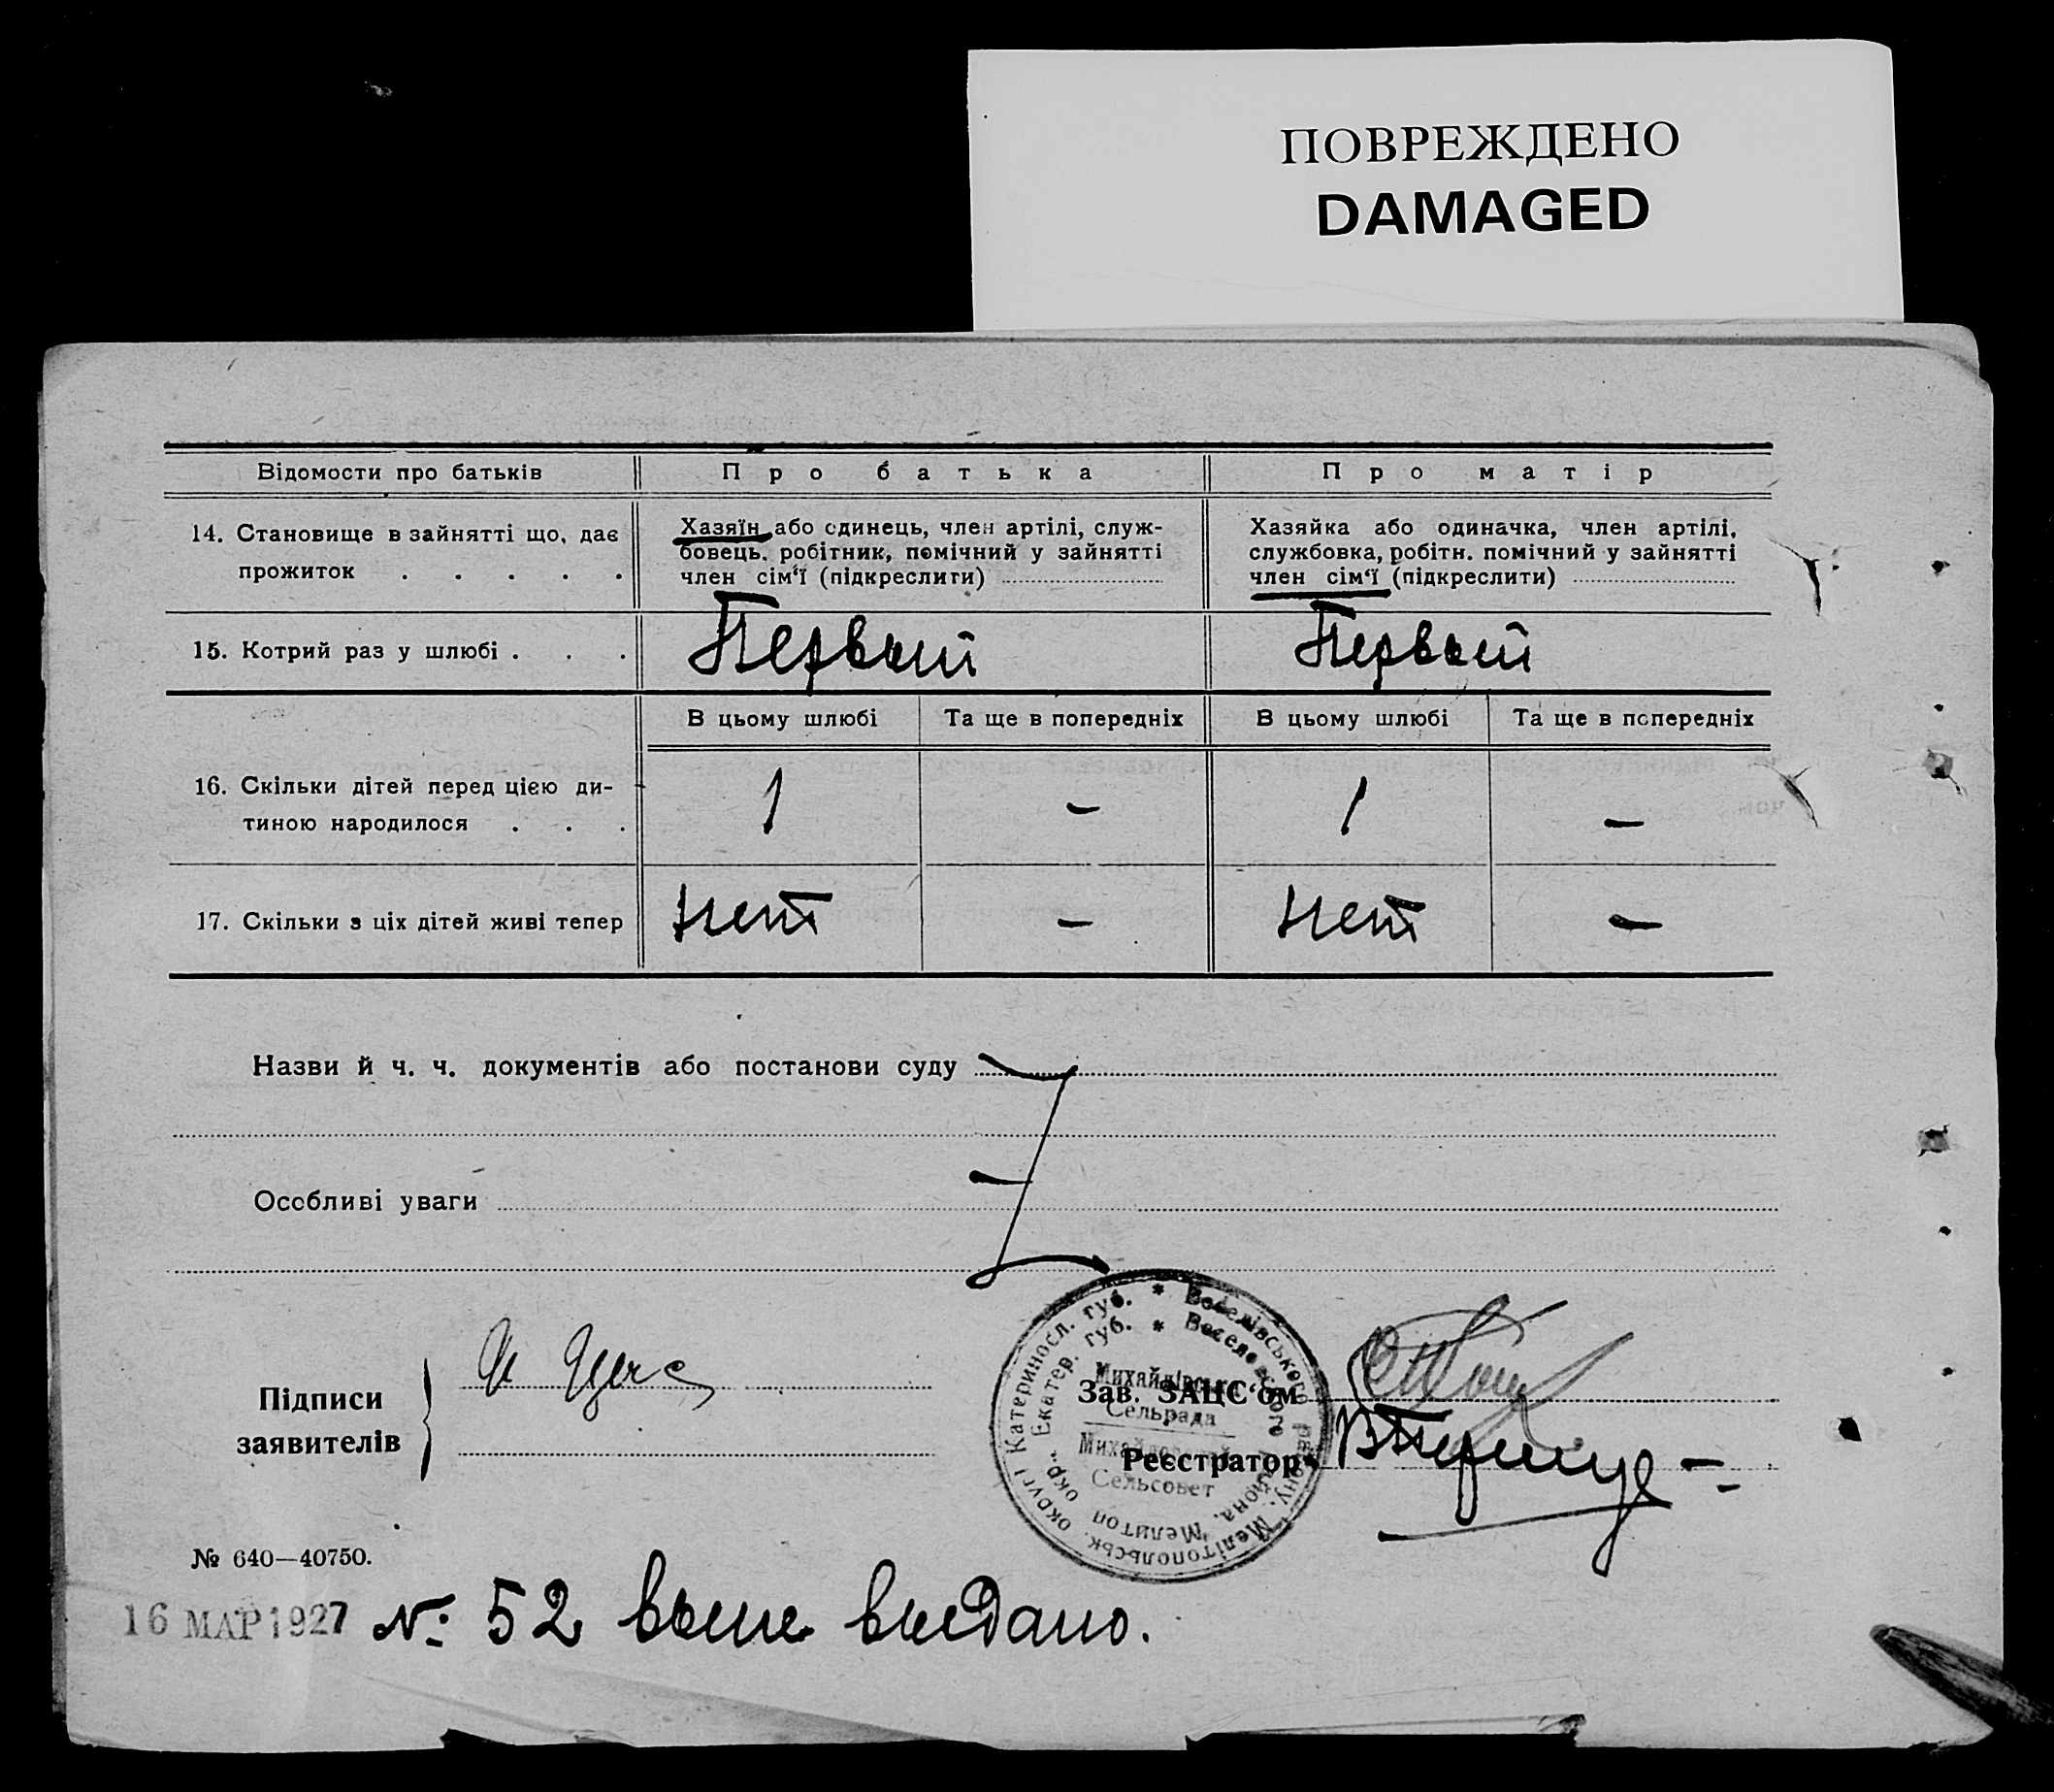 ПОВРЕЖДЕНО
DAMAGED
Відомости про батьків
Про батька
Про матір
14. Становище в зайнятті що, дає
прожиток . . . . .
Хазяїн або єдинець, член артілі, служ-
бовець, робітник, помічний у зайнятті
член сім‘ї (підкреслити)
Хазяйка або одиначка, член артілі,
службовка, робітн. помічний у зайнятті
член сім‘ї (підкреслити)
15. Котрий раз у шлюбі . . .
Первый
Первый
В цьому шлюбі
Та ще в попередніх
В цьому шлюбі
Та ще в попередніх
16. Скільки дітей перед цією ди-
тиною народилося . . .
1
-
1
-
17. Скільки з ціх дітей живі тепер
Нет
-
Нет
-
Назви й ч. ч. документів або постанови суду
Особливі уваги
Підписи
заявителів
Зав. ЗАЦС‘ом
Реєстратор
* Веселівського району, Мелітопольськ. округі Катеринос. губ.
* Веселовского района, Мелитоп. окр. Екатер. губ.
Михайлівськ.
Сельрада
Михайловский
Сельсовет
№ 640—40750.
16 МАР 1927 №: 52 выше выдано.